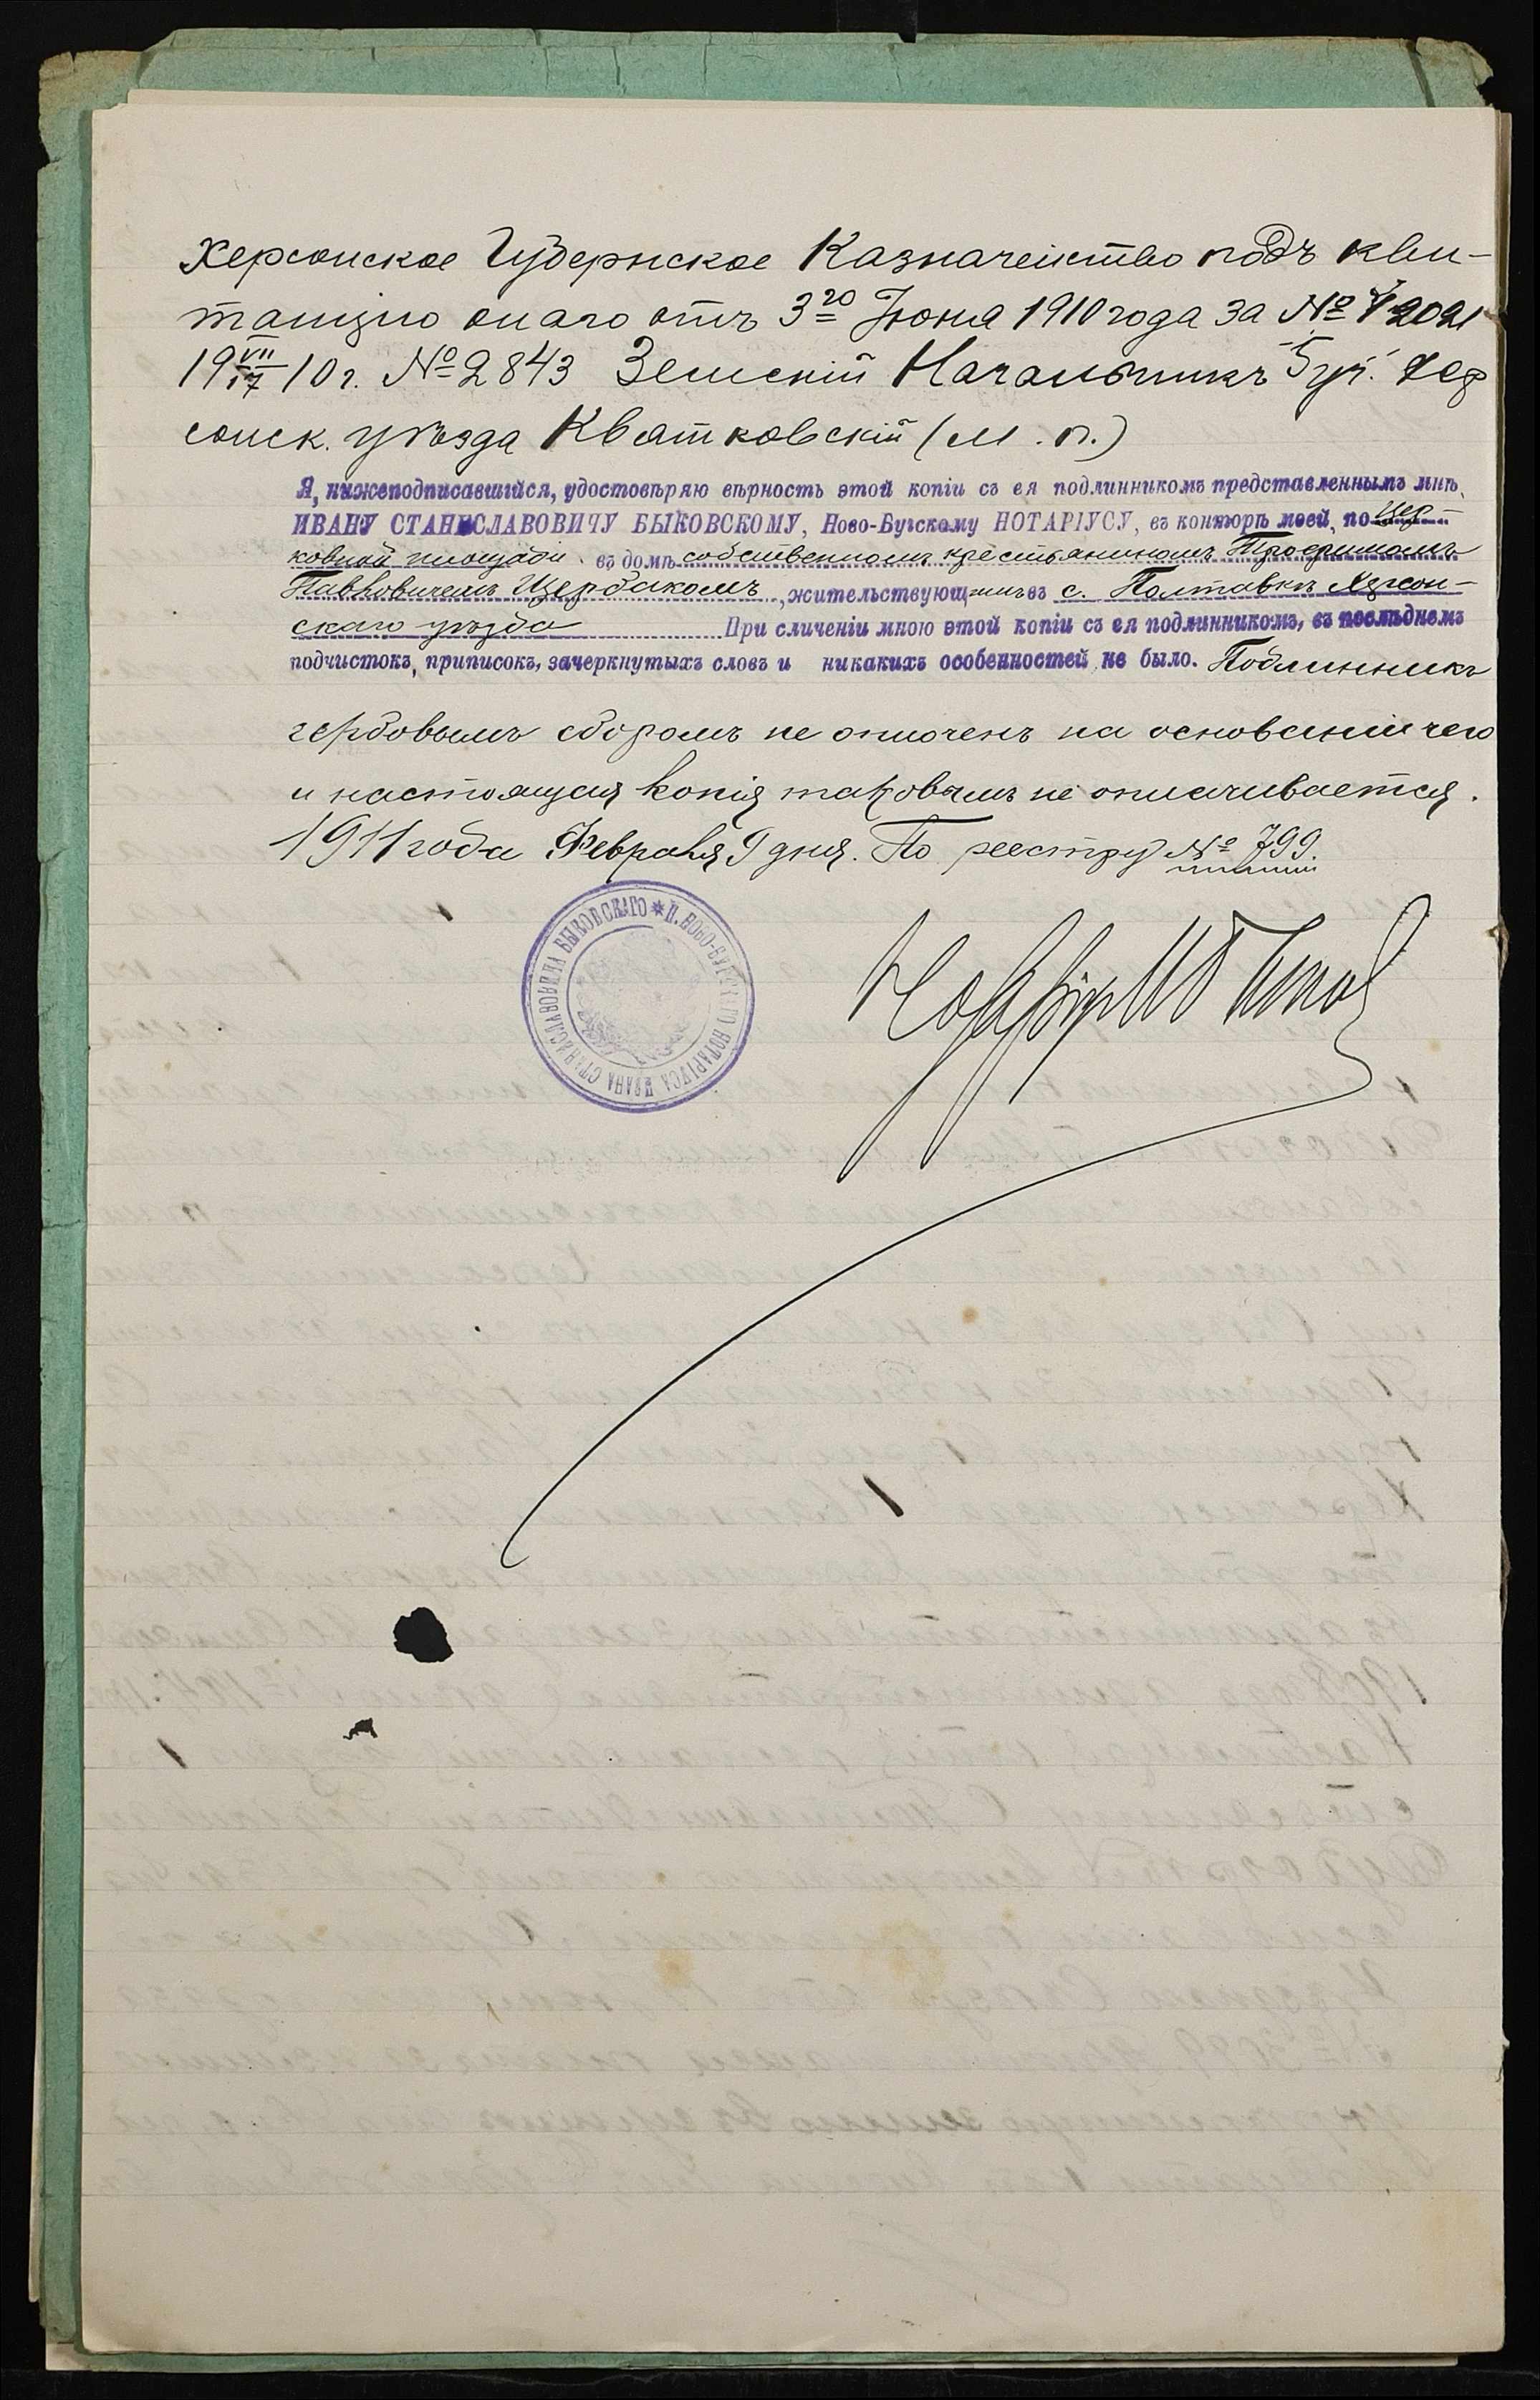 Херсонское Губернское Казначейство подъ кви-
танцію онаго отъ 3го Іюня 1910 года за № 12021
19 VII/17 10 г. № 2843 Земскій Начальникъ 5 уч. Хер
сонск. уѣзда Квятковскій (м. п.)
Я, нижеподписавшійся, удостовѣряю вѣрность этой копіи съ ея подлинникомъ представленнымъ мнѣ,
ИВАНУ СТАНИСЛАВОВИЧУ БЫКОВСКОМУ, Ново-Бугскому НОТАРІУСУ, въ конторѣ моей, по Цер-
ковной площади въ домѣ собственномъ крестьяниномъ Трофимомъ
Павловичемъ Щербакомъ, жительствующимъ въ с. Полтавкѣ Херсон-
скаго уѣзда При сличеніи мною этой копіи съ ея подлинникомъ, въ послѣднемъ
подчистокъ, приписокъ, зачеркнутыхъ словъ и никакихъ особенностей не было. Подлинникъ
гербовымъ сборомъ не оплоченъ на основаніи чего
и настоящая копія таковымъ не оплачивается.
1911 года Февраля 9 дня. По реестру № 799.
Н. НОВО-БУГСКАГО НОТАРІУСА ИВАНА СТАНИСЛАВОВИЧА БЫКОВСКАГО
Нотаріусъ